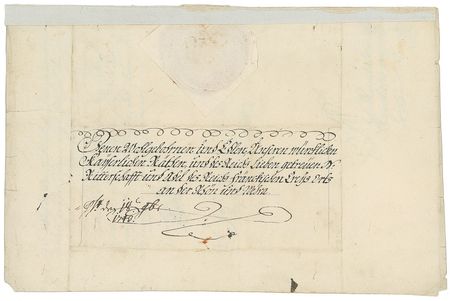 Denen Wohlgebohrnen und Edlen, Unseren würcklichen
Kayserlichen Räthen, und des Reichs Lieben getreuen N.
Ritterschafft und Adel des Reichs fränckischen Creyß Orts
an der Rhön und Wehra.
den 14